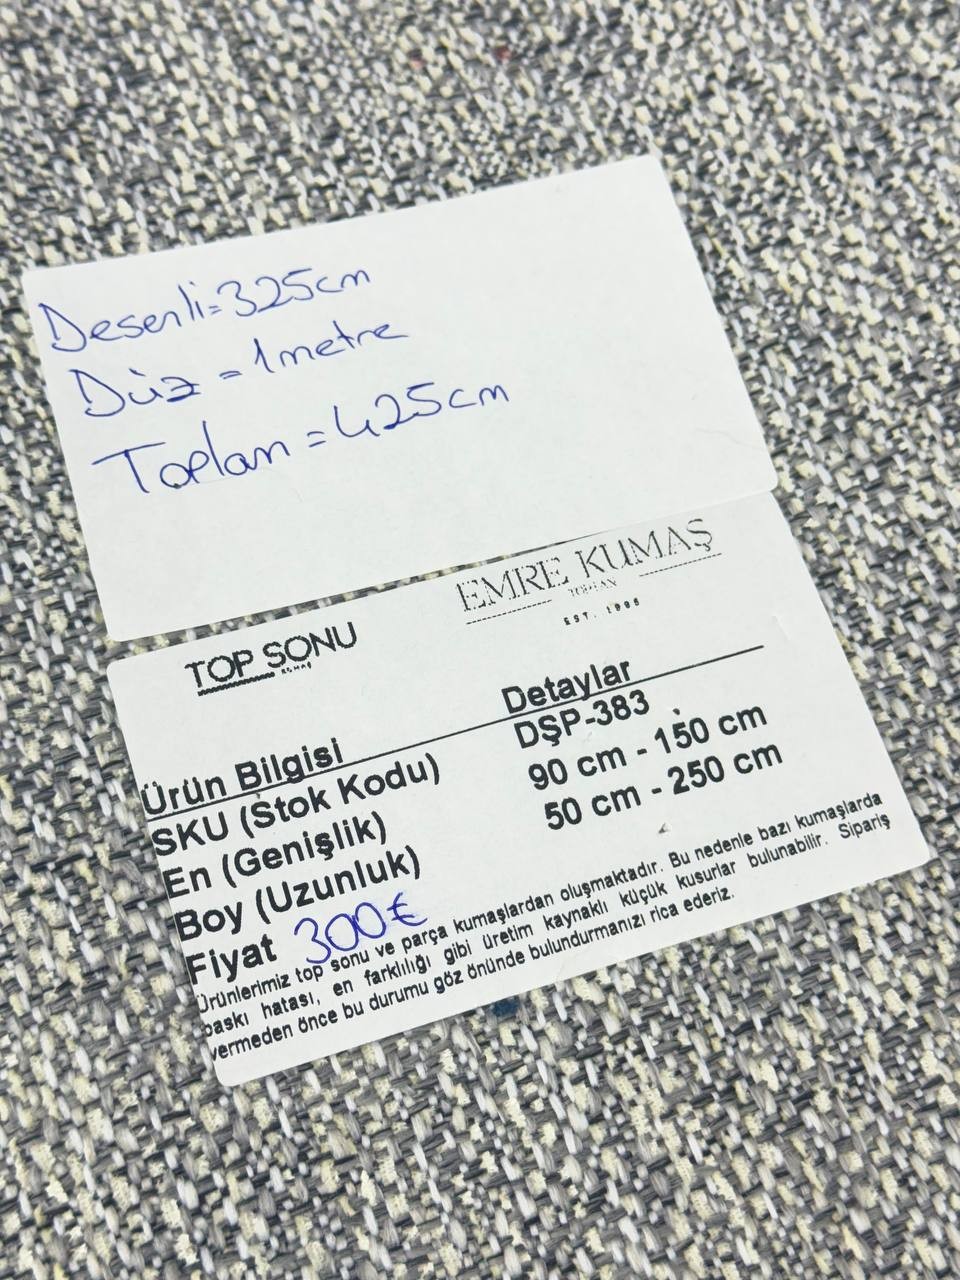 Desenli=325cm
Düz = 1metre
Toplam = 425cm
TOP SONU
KUMAŞ
EMRE KUMAŞ
TOPTAN
EST. 1995
Ürün Bilgisi Detaylar
SKU (Stok Kodu) DŞP-383
En (Genişlik) 90 cm - 150 cm
Boy (Uzunluk) 50 cm - 250 cm
Fiyat 300€
Ürünlerimiz top sonu ve parça kumaşlardan oluşmaktadır. Bu nedenle bazı kumaşlarda
baskı hatası, en farklılığı gibi üretim kaynaklı küçük kusurlar bulunabilir. Sipariş
vermeden önce bu durumu göz önünde bulundurmanızı rica ederiz.